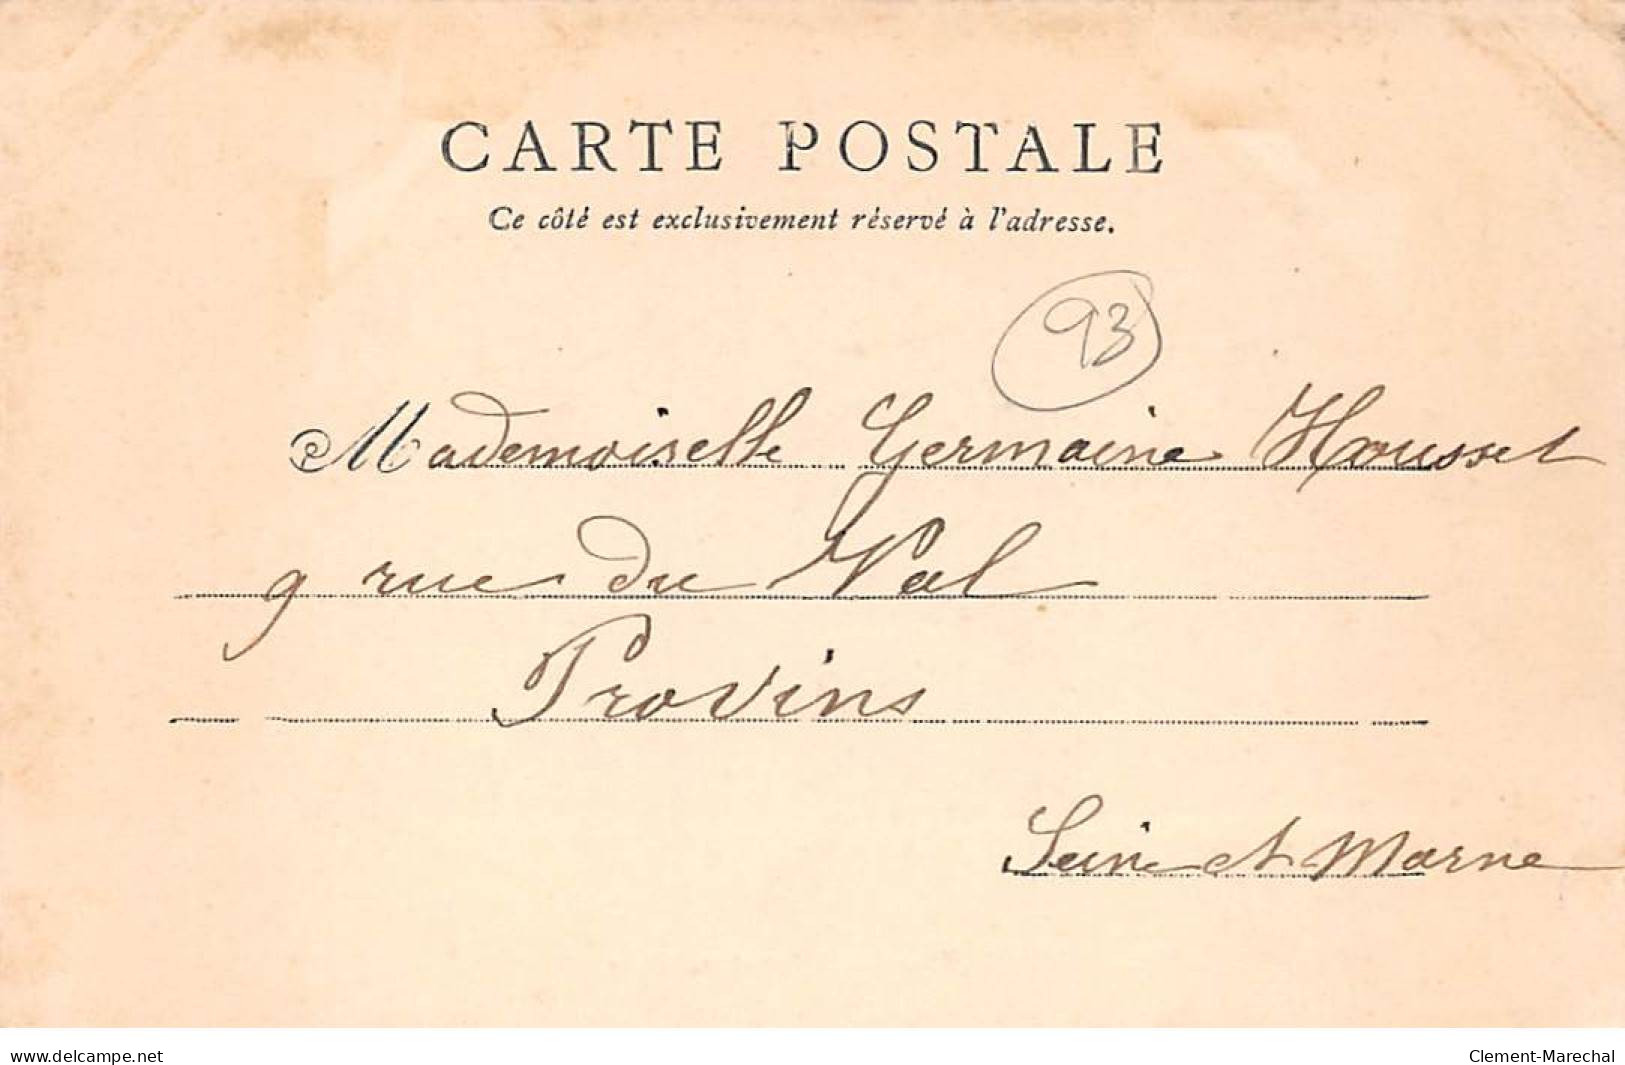 CARTE POSTALE
Ce côté est exclusivement réservé à l'adresse.
93
Mademoiselle Germaine Housset
9 rue du Val
Provins
Seine et Marne
www.delcampe.net
Clement-Marechal